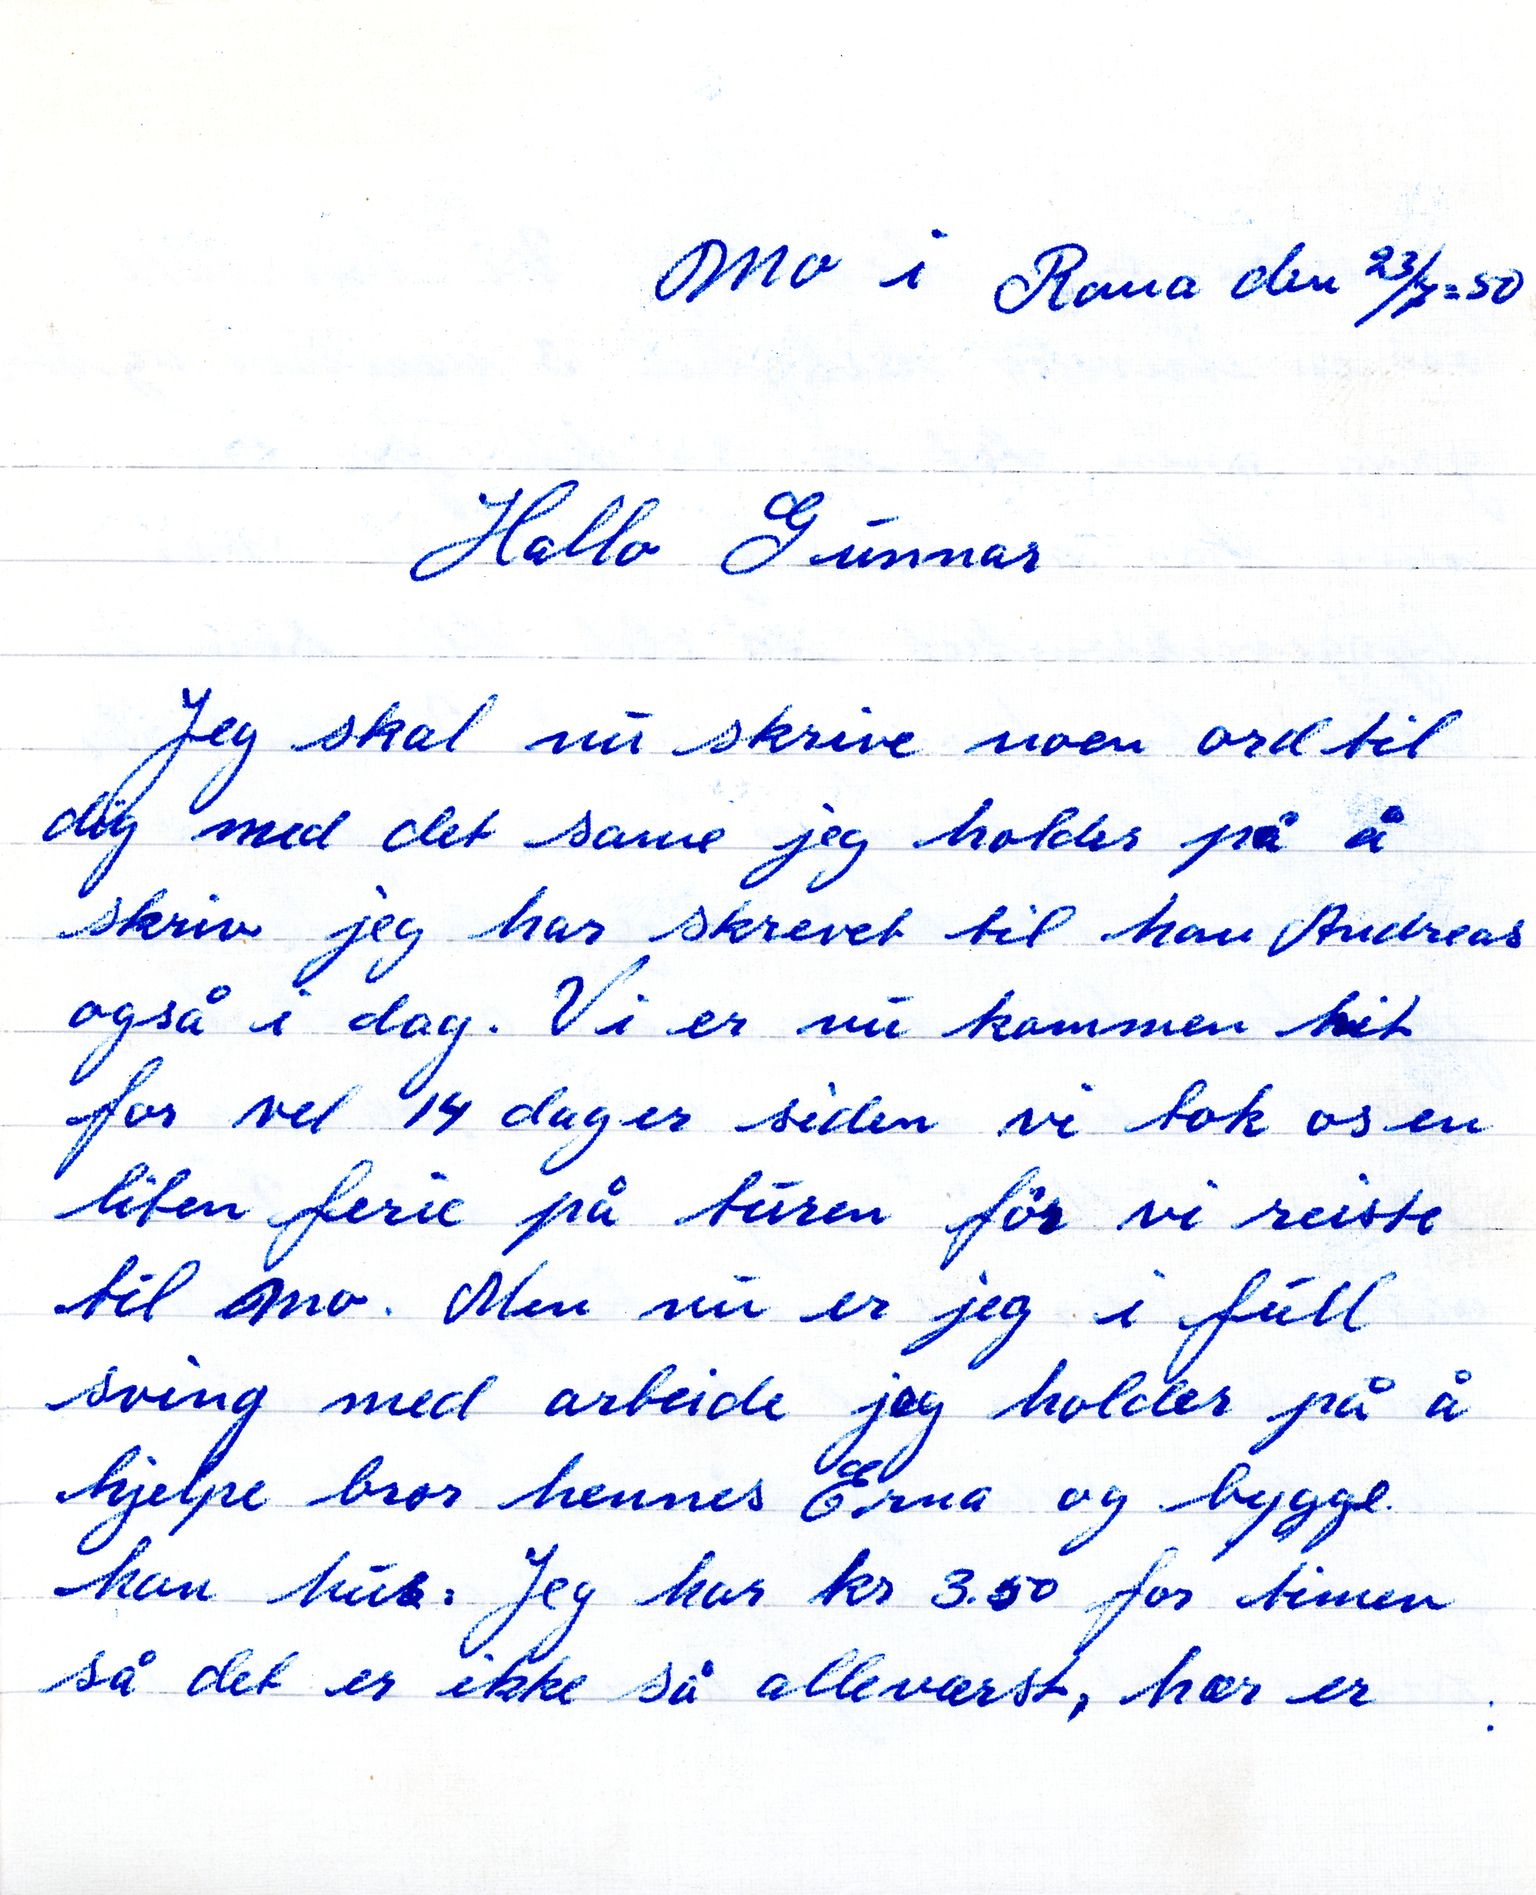 Mo i Rana den 23/7=50
Hallo Gunnar
Jeg skal nu skrive noen ord til
dig med det same jeg holder på å
skriv jeg har skrevet til han Andreas
også i dag. Vi er nu kommen hit
for vel 14 dager siden vi tok os en
liten ferie på turen før vi reiste
til Mo. Men nu er jeg i full
sving med arbeide jeg holder på å
hjelpe bror hennes Erna og bygge
han hus. Jeg har kr 3.50 for timen
så det er ikke så alleværst, hær er